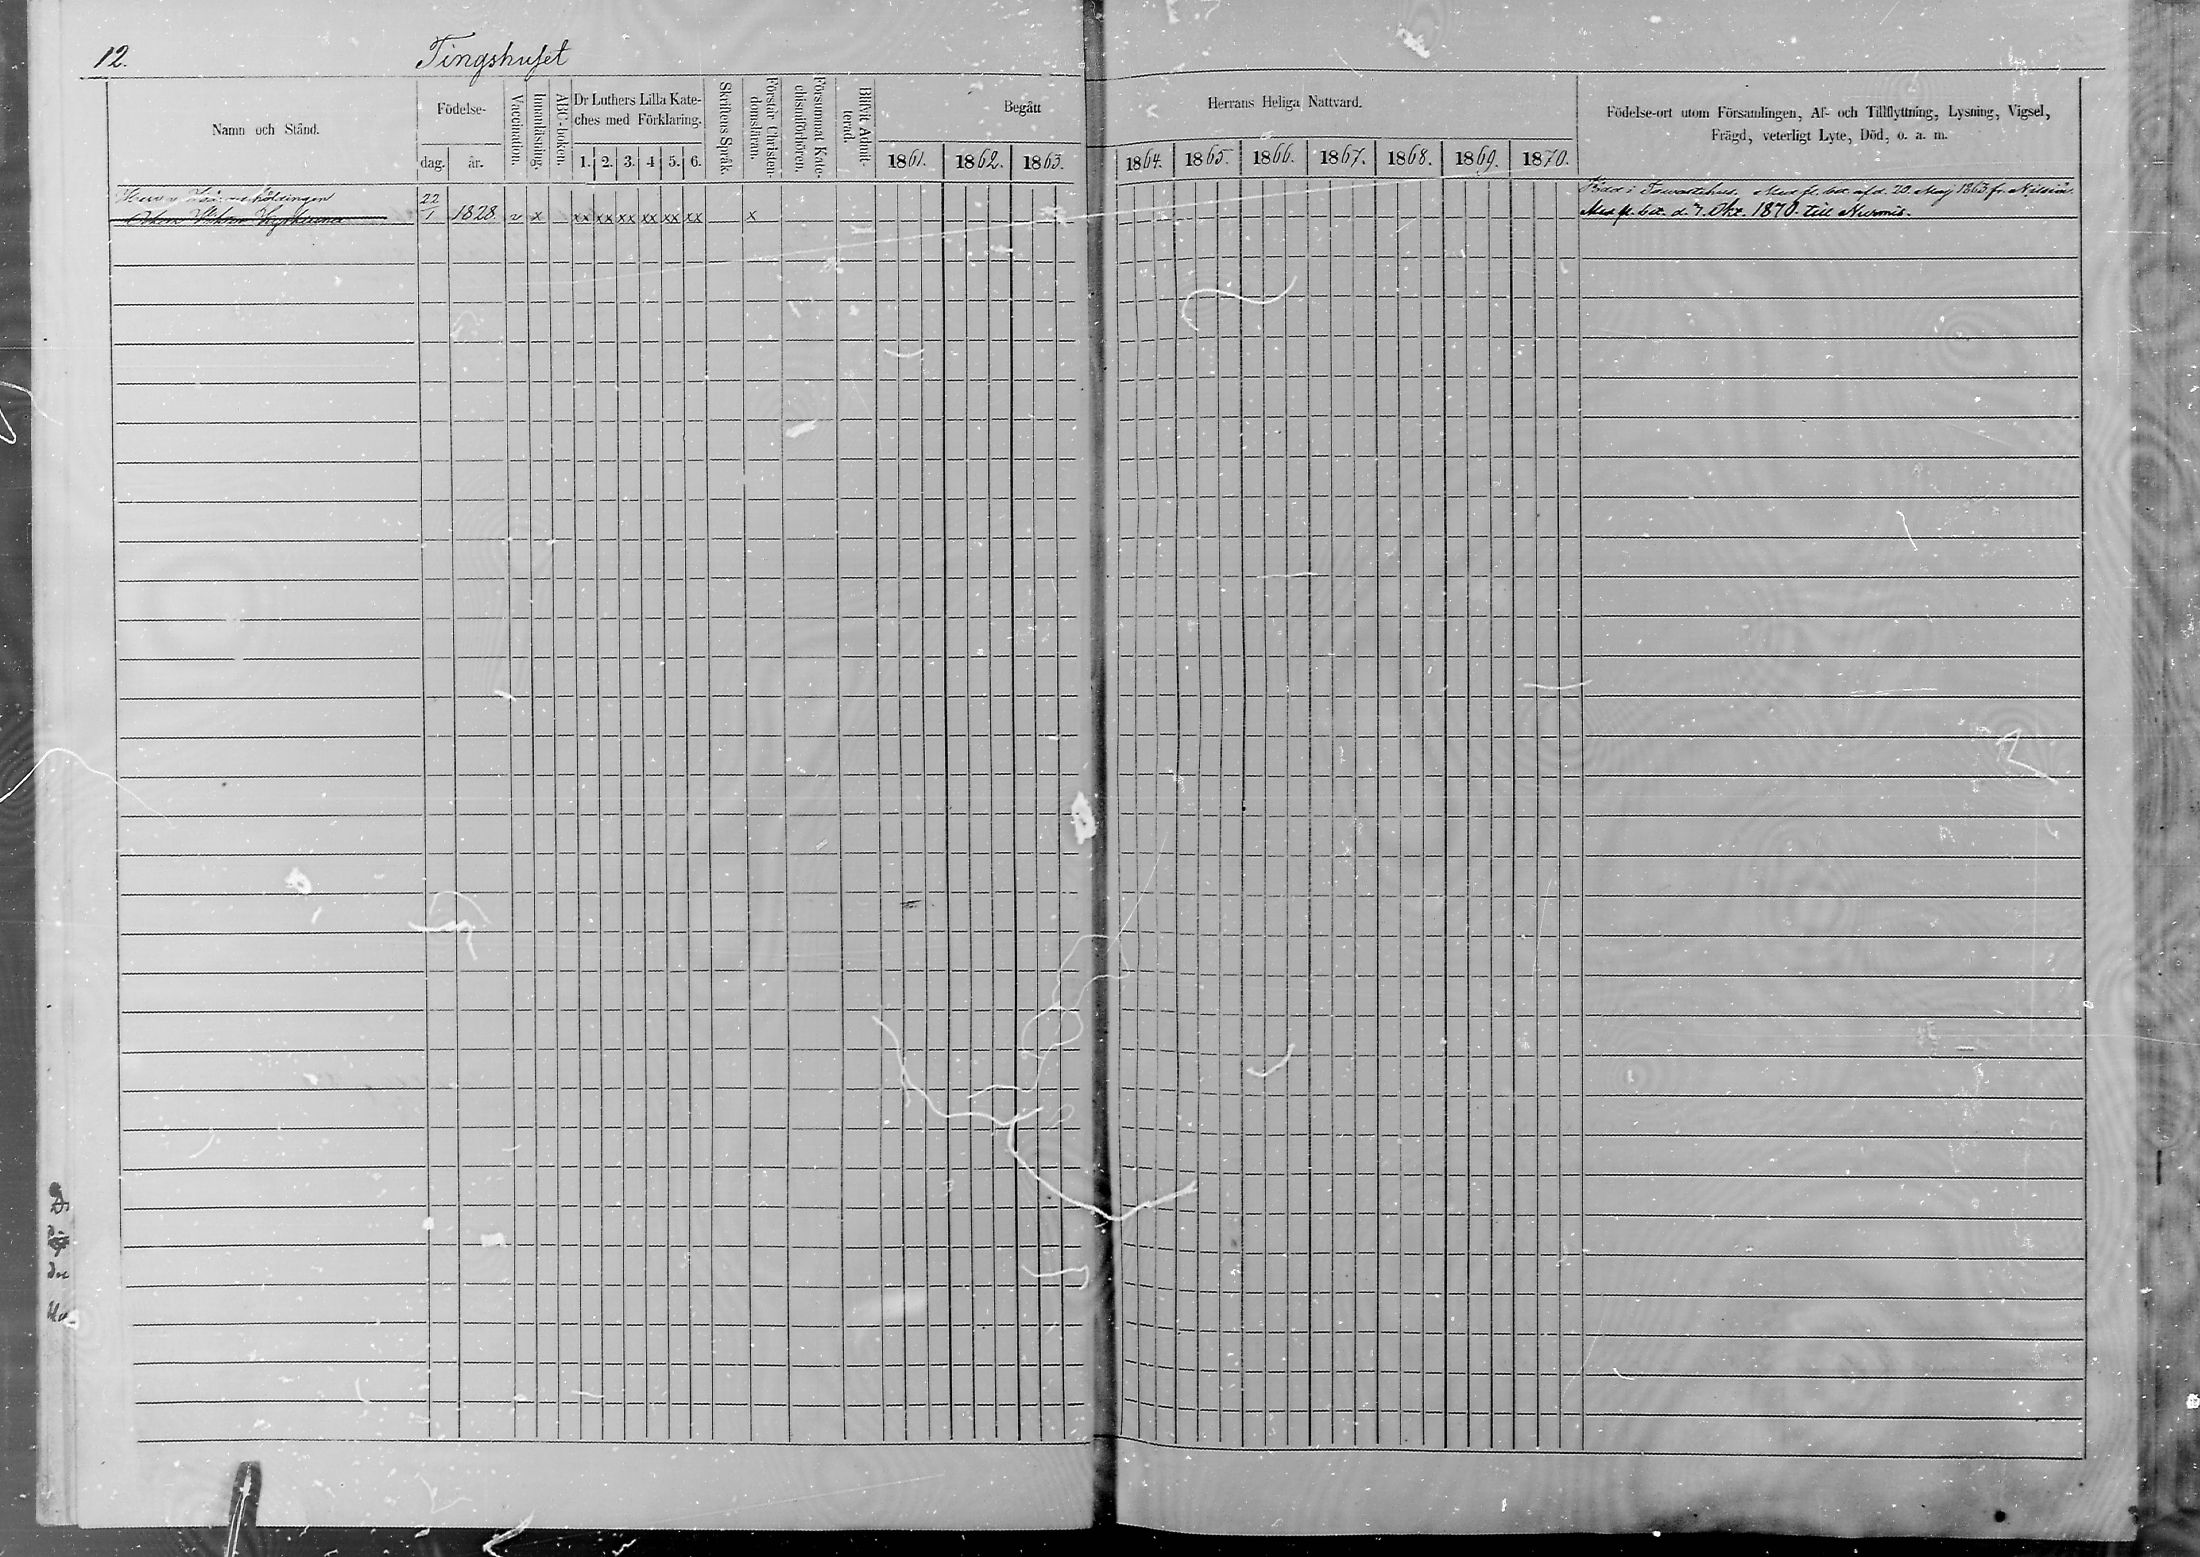 12.
Tingshuset
Namn och Stånd.
Födelse-
dag.
år.
Vaccination.
Innanläsning.
ABC-boken.
Dr Luthers Lilla Kate-
ches med Förklaring.
1. 2. 3. 4 5. 6.
Skriftens Språk.
Förstår Christen-
domsläran.
Försummat Kate-
chismiförhören.
Blifvit Admit-
terad.
Begått
1861. 1862. 1863.
Herrans Heliga Nattvard.
1864. 1865. 1866. 1867. 1868. 1869. 1870.
Födelse-ort utom Församlingen, Af- och Tillflyttning, Lysning, Vigsel,
Frägd, veterligt Lyte, Död, o. a. m.
22
1 1828. v x xx xx xx xx xx xx x
Född i Tawastehus. Med fl. bet. af d. 20. Maj 1863 fr. Nilsiä.
Med fl. bet. d. 7. Okt. 1870. till Nurmis.